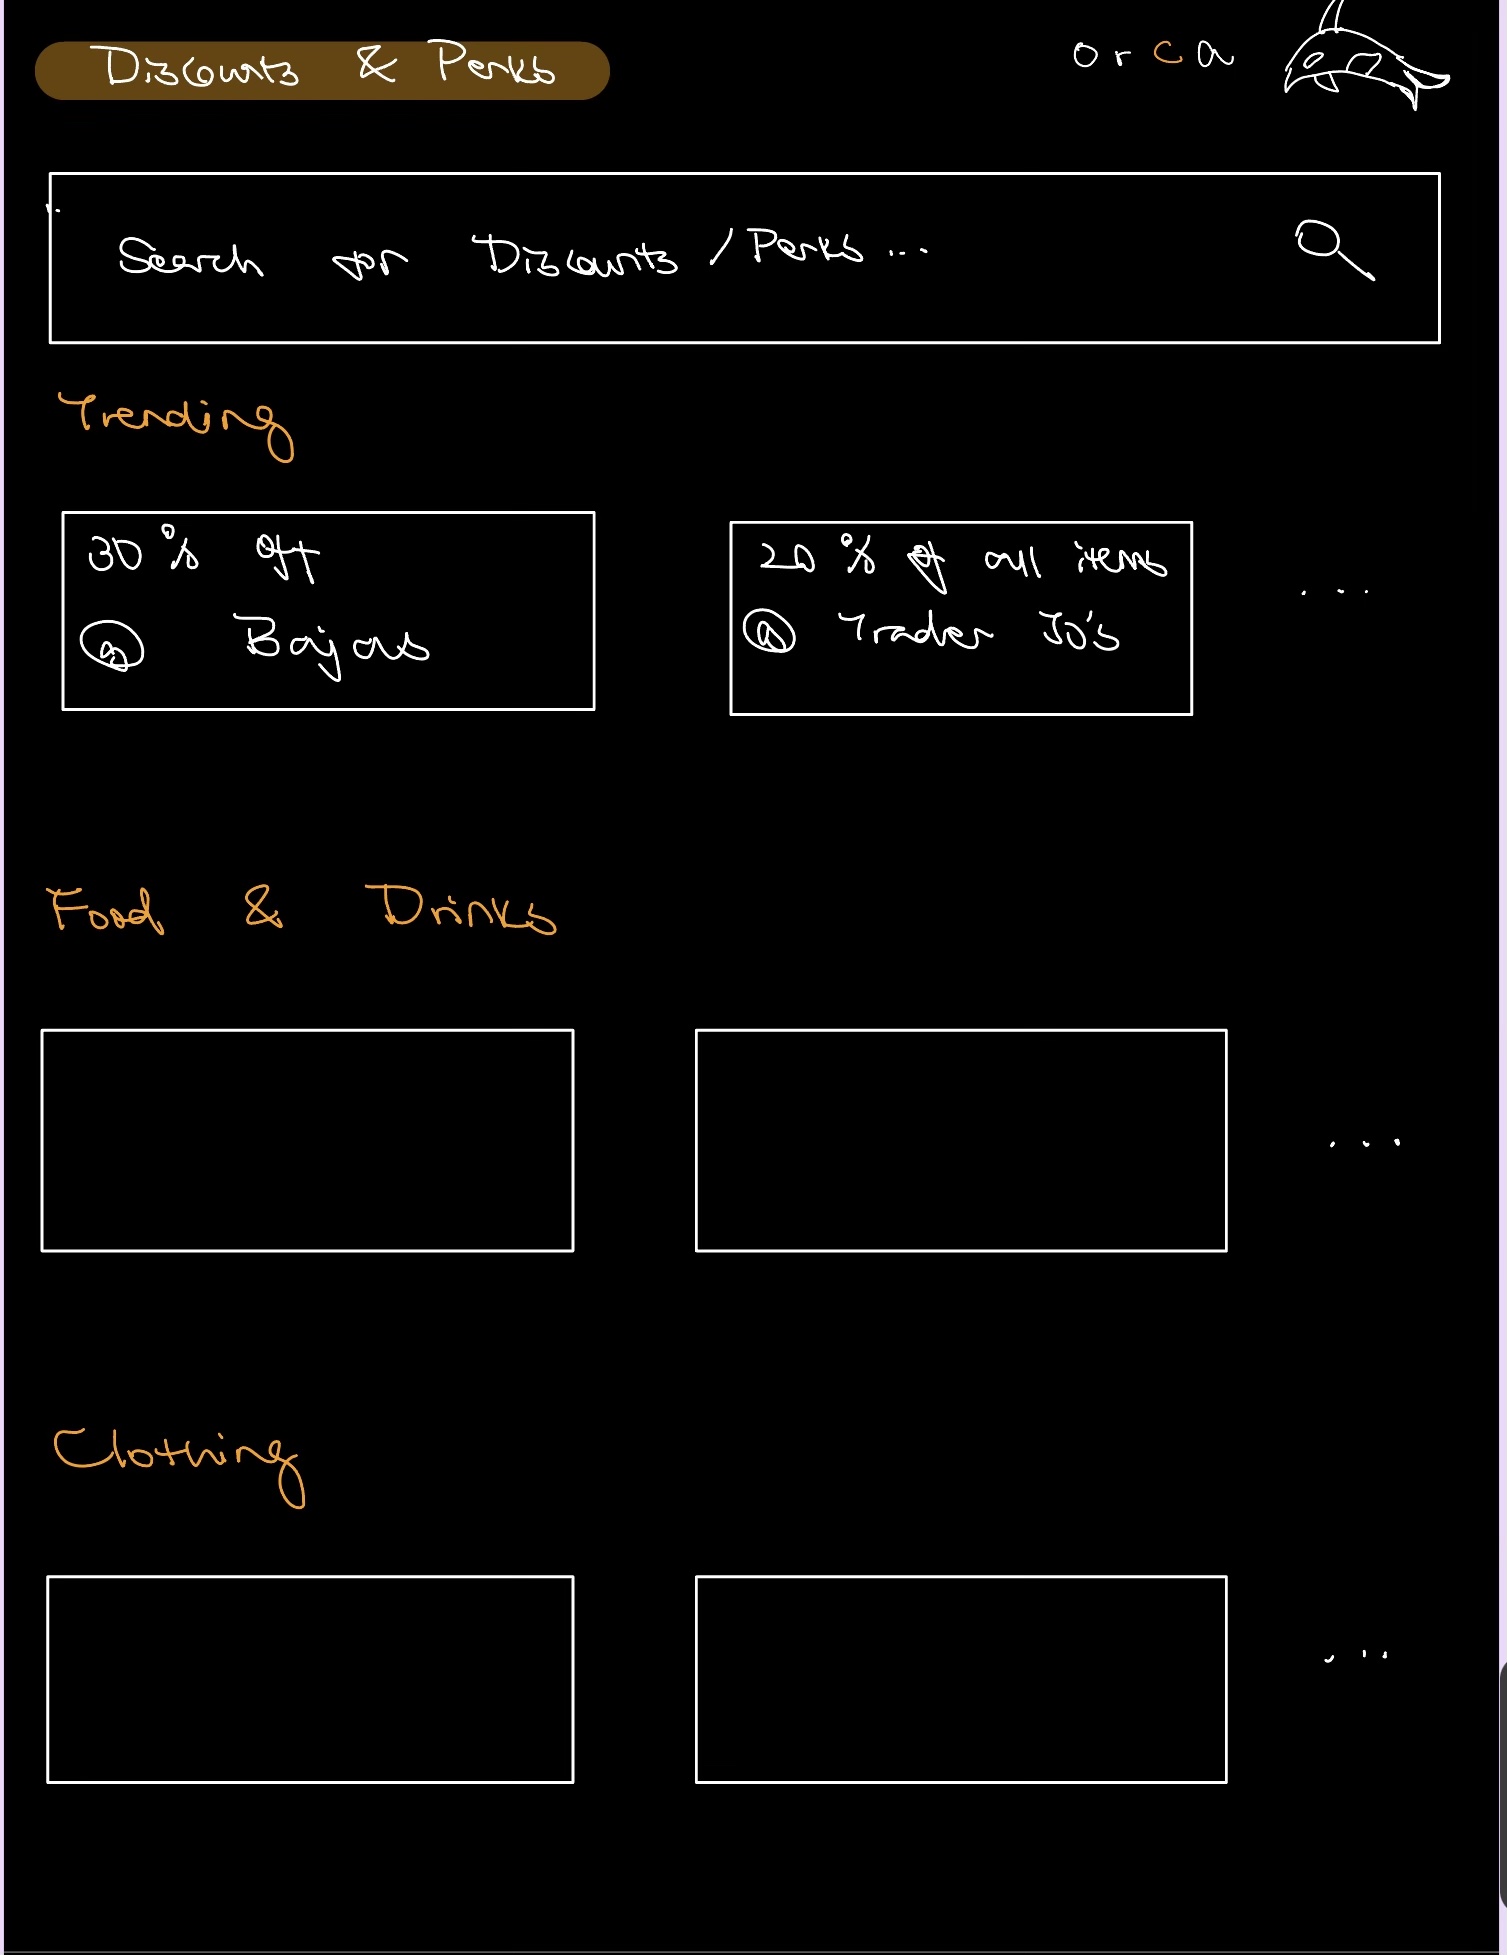 Discounts & Perks
orca
Search for Discounts / Perks ...
Trending
30% off
@ Bajas
20% of all items
@ Trader JO's
...
Food & Drinks
...
Clothing
...